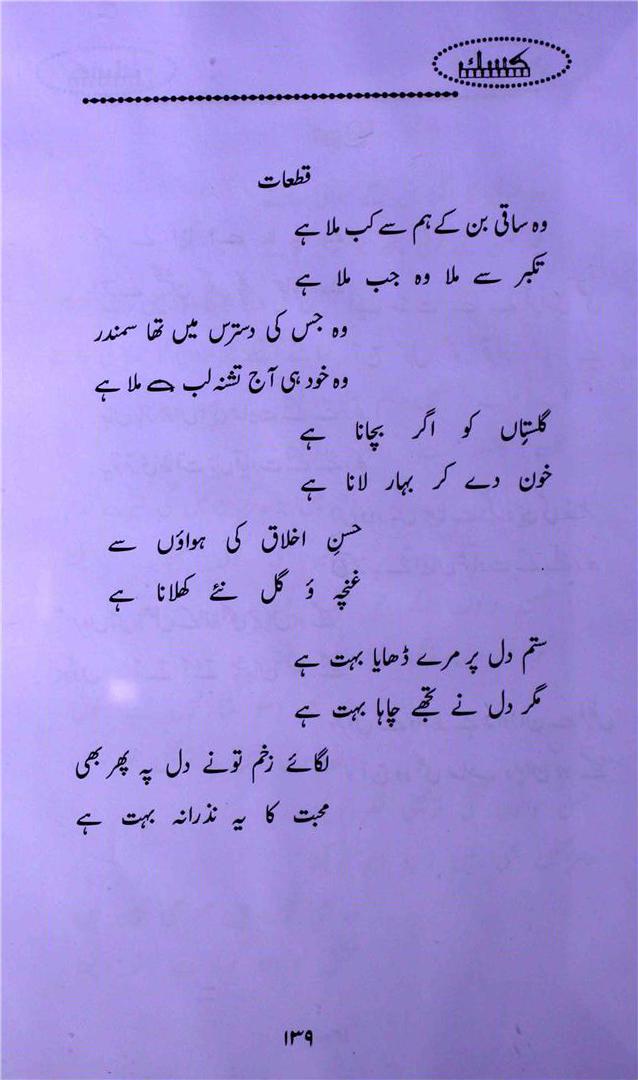 کسک
قطعات
وہ ساقی بن کے ہم سے کب ملا ہے
تکبر سے ملا وہ جب ملا ہے
وہ جس کی دسترس میں تھا سمندر
وہ خود ہی آج تشنہ لب ملا ہے
گلستاں کو اگر بچانا ہے
خون دے کر بہار لانا ہے
حسنِ اخلاق کی ہواؤں سے
غنچہ ؤ گل نئے کھلانا ہے
ستم دل پر مرے ڈھایا بہت ہے
مگر دل نے تجھے چاہا بہت ہے
لگائے زخم تونے دل پہ پھر بھی
محبت کا یہ نذرانہ بہت ہے
۱۳۹